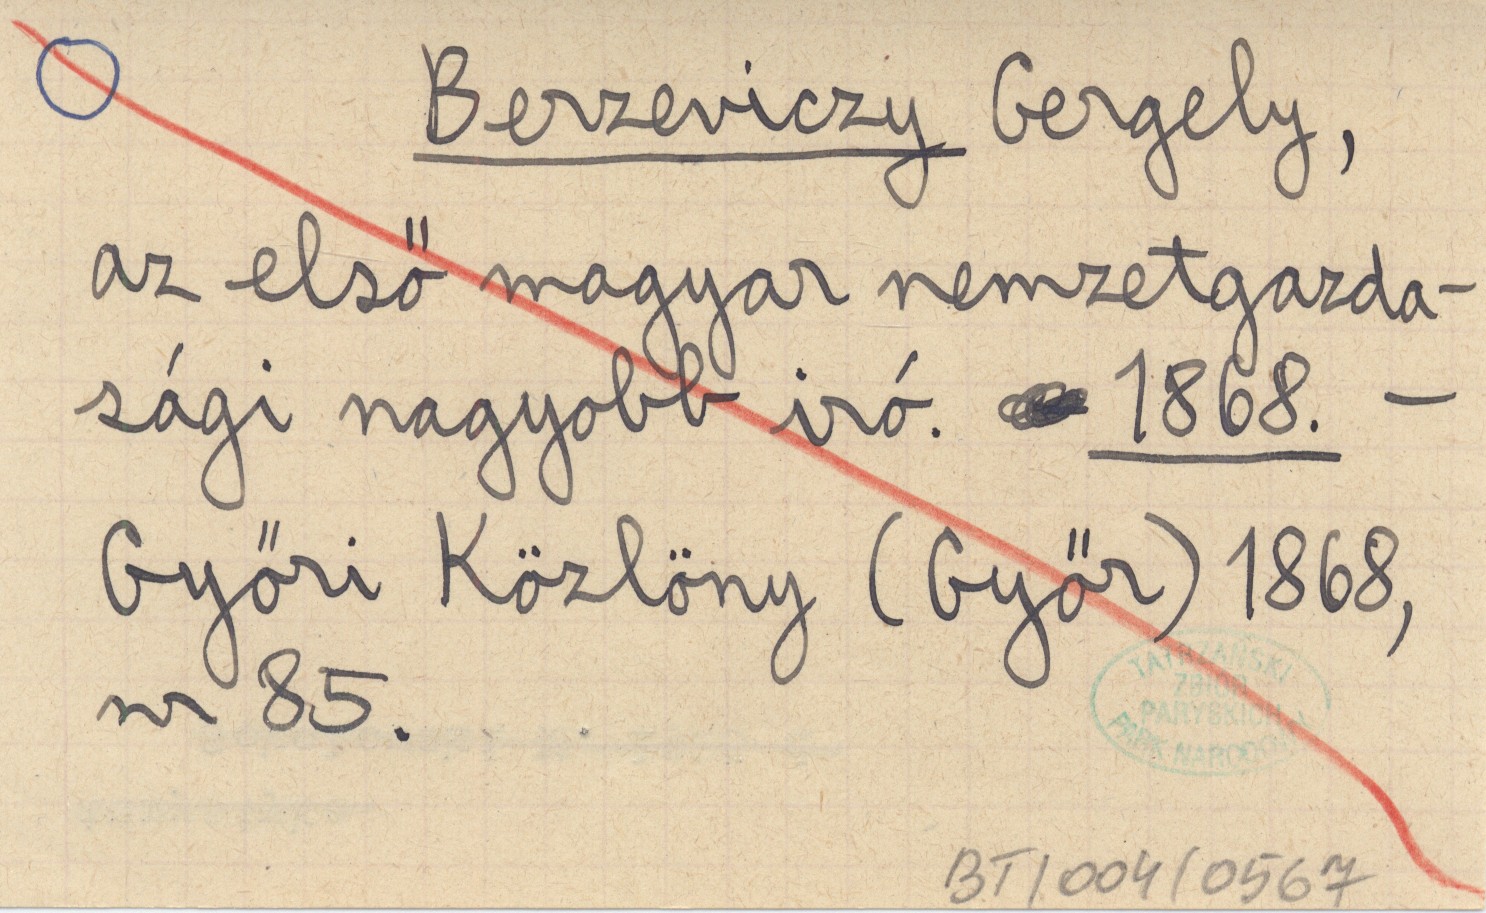 Berzeviczy Gergely,
az első magyar nemzetgazda-
sági nagyobb iró. 1868. —
Győri Közlöny (Győr) 1868,
nr 85.
TATRZAŃSKI
ZBIÓR
PARYSKICH
PARK NARODOWY
BT/004/0567